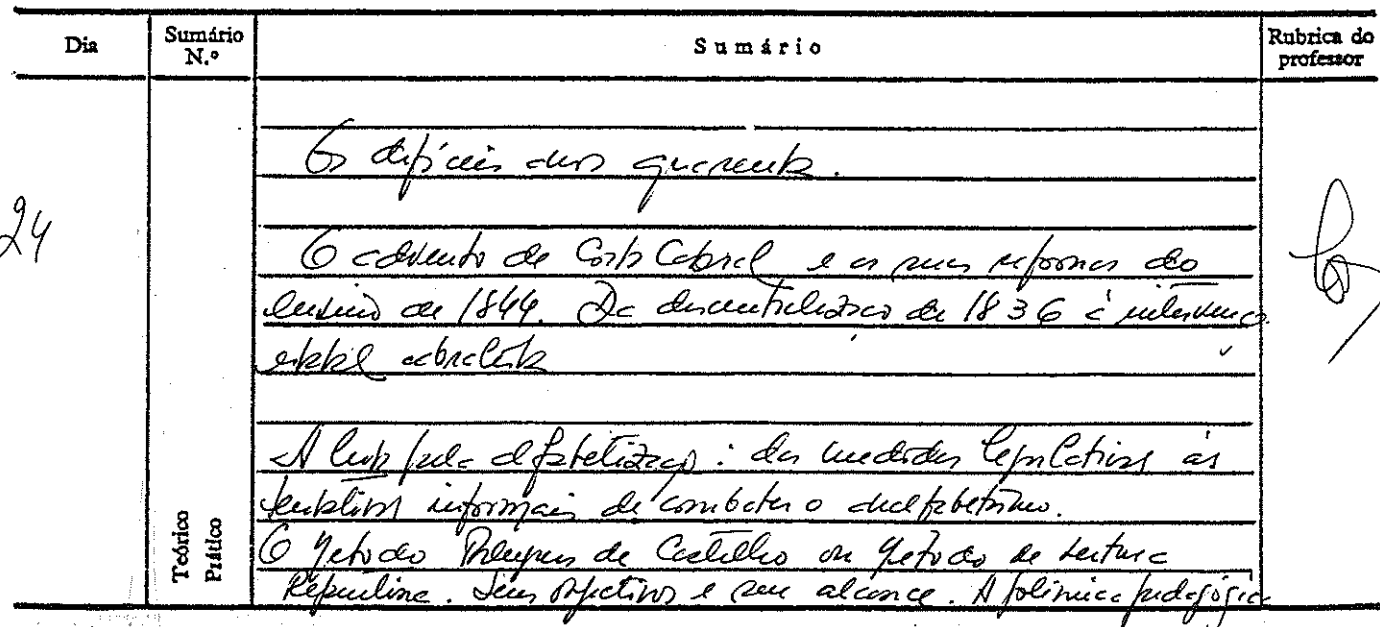 Dia Sumário N.º Sumário Rubrica do professor
Os difíceis anos quarenta.
24
O advento de Costa Cabral e as suas reformas do
ensino de 1844. Da descentralização de 1836 à intervenção
estatal cabralista
A luta pela alfabetização: das medidas legislativas às
tentativas informais de combater o analfabetismo.
O Método Português de Castilho ou Método de Leitura
Repentina. Seus objectivos e seu alcance. A polémica pedagógica
Teórico
Prático